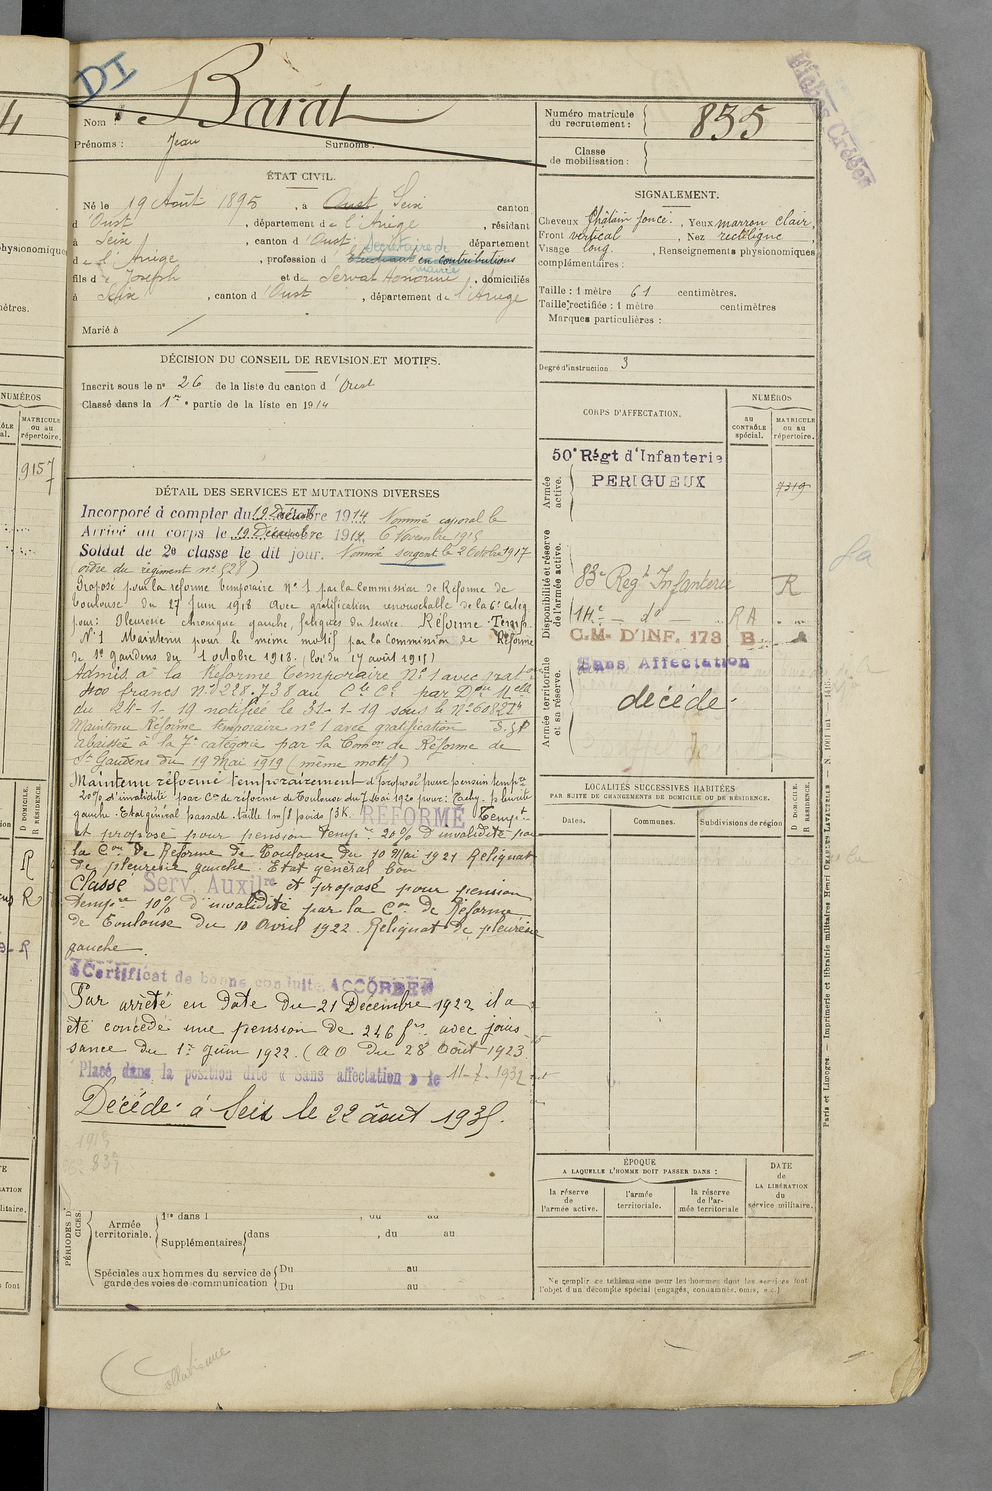 DI
Barat
Nom :
Prénoms : Jean Surnoms :
Numéro matricule du recrutement : 835
Classe de mobilisation :
Fiches Créées
ÉTAT CIVIL.
Né le 19 Août 1895, à Oust Seix canton
d'Oust, département de l'Ariège, résidant
à Seix, canton d'Oust, département
d e l'Ariège, profession d Etudiant en contributions
Secrétaire de mairie
fils d e Joseph et de Servat Honorine, domiciliés
à Seix, canton d'Oust, département de l'Ariège
Marié à
SIGNALEMENT.
Cheveux Châtain foncé. Yeux marron clair,
Front vertical, Nez rectiligne,
Visage long. Renseignements physionomiques
complémentaires :
Taille : 1 mètre 61 centimètres.
Taille rectifiée : 1 mètre centimètres
Marques particulières :
Degré d'instruction 3
DÉCISION DU CONSEIL DE REVISION ET MOTIFS.
Inscrit sous le n° 26 de la liste du canton d'Oust
Classé dans la 1re partie de la liste en 1914
DÉTAIL DES SERVICES ET MUTATIONS DIVERSES
Incorporé à compter du 19 Décembre 1914 Nommé caporal le
Arrivé au corps le 19 Décembre 1914. 6 Novembre 1915
Soldat de 2e classe le dit jour. Nommé sergent le 2 Octobre 1917
ordre du régiment n° 528)
Proposé pour la réforme temporaire N° 1 par la Commission de Réforme de
Toulouse du 17 Juin 1918 avec gratification renouvelable de la 6e categ
pour: Pleurésie chronique gauche, fatigues du service. Réforme Temp.
N° 1 Maintenu pour le même motif par la Commission de Réforme
de St Gaudens du 1 octobre 1918. (loi du 17 août 1915)
Admis à la Réforme temporaire N° 1 avec grat on
400 francs N° 228.738 au par Don Melle
du 24-1-19 notifiée le 31-1-19 sous le N° 60827
Maintenu Réforme temporaire n° 1 avec gratification
abaissée à la 7e catégorie par la Comon de Réforme de
St Gaudens du 19 Mai 1919 (même motif)
Maintenu réformé temporairement et proposé pour pension tempre
20% d'invalidité par Con de réforme de Toulouse du 7 Mai 1920 pour: pleurite
gauche. Etat général passable. taille 1m61 poids 53K. REFORME Tempt
et proposé pour pension tempre 20% d'invalidité par
la Con de Réforme de Toulouse du 10 Mai 1921 Reliquat
de pleurésie gauche. Etat général bon
Classé Serv. Auxilre et proposé pour pension
tempre 10% d'invalidité par la Con de Réforme
de Toulouse du 10 Avril 1922. Reliquat de pleurésie
gauche
Certificat de bonne conduite ACCORDÉ
Par arrêté en date du 21 Décembre 1922 il a
été concédé une pension de 246 frs avec jouis-
sance du 1er Juin 1922. (A O du 28 Août 1923
Placé dans la position dite « Sans affectation » le 11-7-1932
Décédé à Seix le 22 août 1935.
CORPS D'AFFECTATION.
NUMÉROS
au CONTRÔLE spécial.
MATRICULE ou au répertoire.
Armée active.
50e Régt d'Infanterie
PERIGUEUX
7319
Disponibilité et réserve de l'armée active.
83e Regt Infanterie R
14e - do - RA
C.M. D'INF. 173 B.
Armée territoriale et sa réserve.
Sans Affectation
décédé.
LOCALITÉS SUCCESSIVES HABITÉES
PAR SUITE DE CHANGEMENTS DE DOMICILE OU DE RÉSIDENCE.
Dates. Communes. Subdivisions de région
D DOMICILE.
R RÉSIDENCE.
ÉPOQUE
A LAQUELLE L'HOMME DOIT PASSER DANS :
la réserve de l'armée active.
l'armée territoriale.
la réserve de l'armée territoriale
DATE DE LA LIBÉRATION du service militaire.
Ne remplir ce tableau que pour les hommes dont les services font
l'objet d'un décompte spécial (engagés, condamnés, omis, etc.)
Armée territoriale. 1re dans l , du au
Supplémentaires dans , du au
Spéciales aux hommes du service de garde des voies de communication
Du au
Du au
Collationné
Paris et Limoges. — Imprimerie et librairie militaires Henri CHARLES-LAVAUZELLE
4
physionomiques
mètres.
NUMÉROS
MATRICULE ou au répertoire.
9157
D DOMICILE.
R RÉSIDENCE.
R
R
R